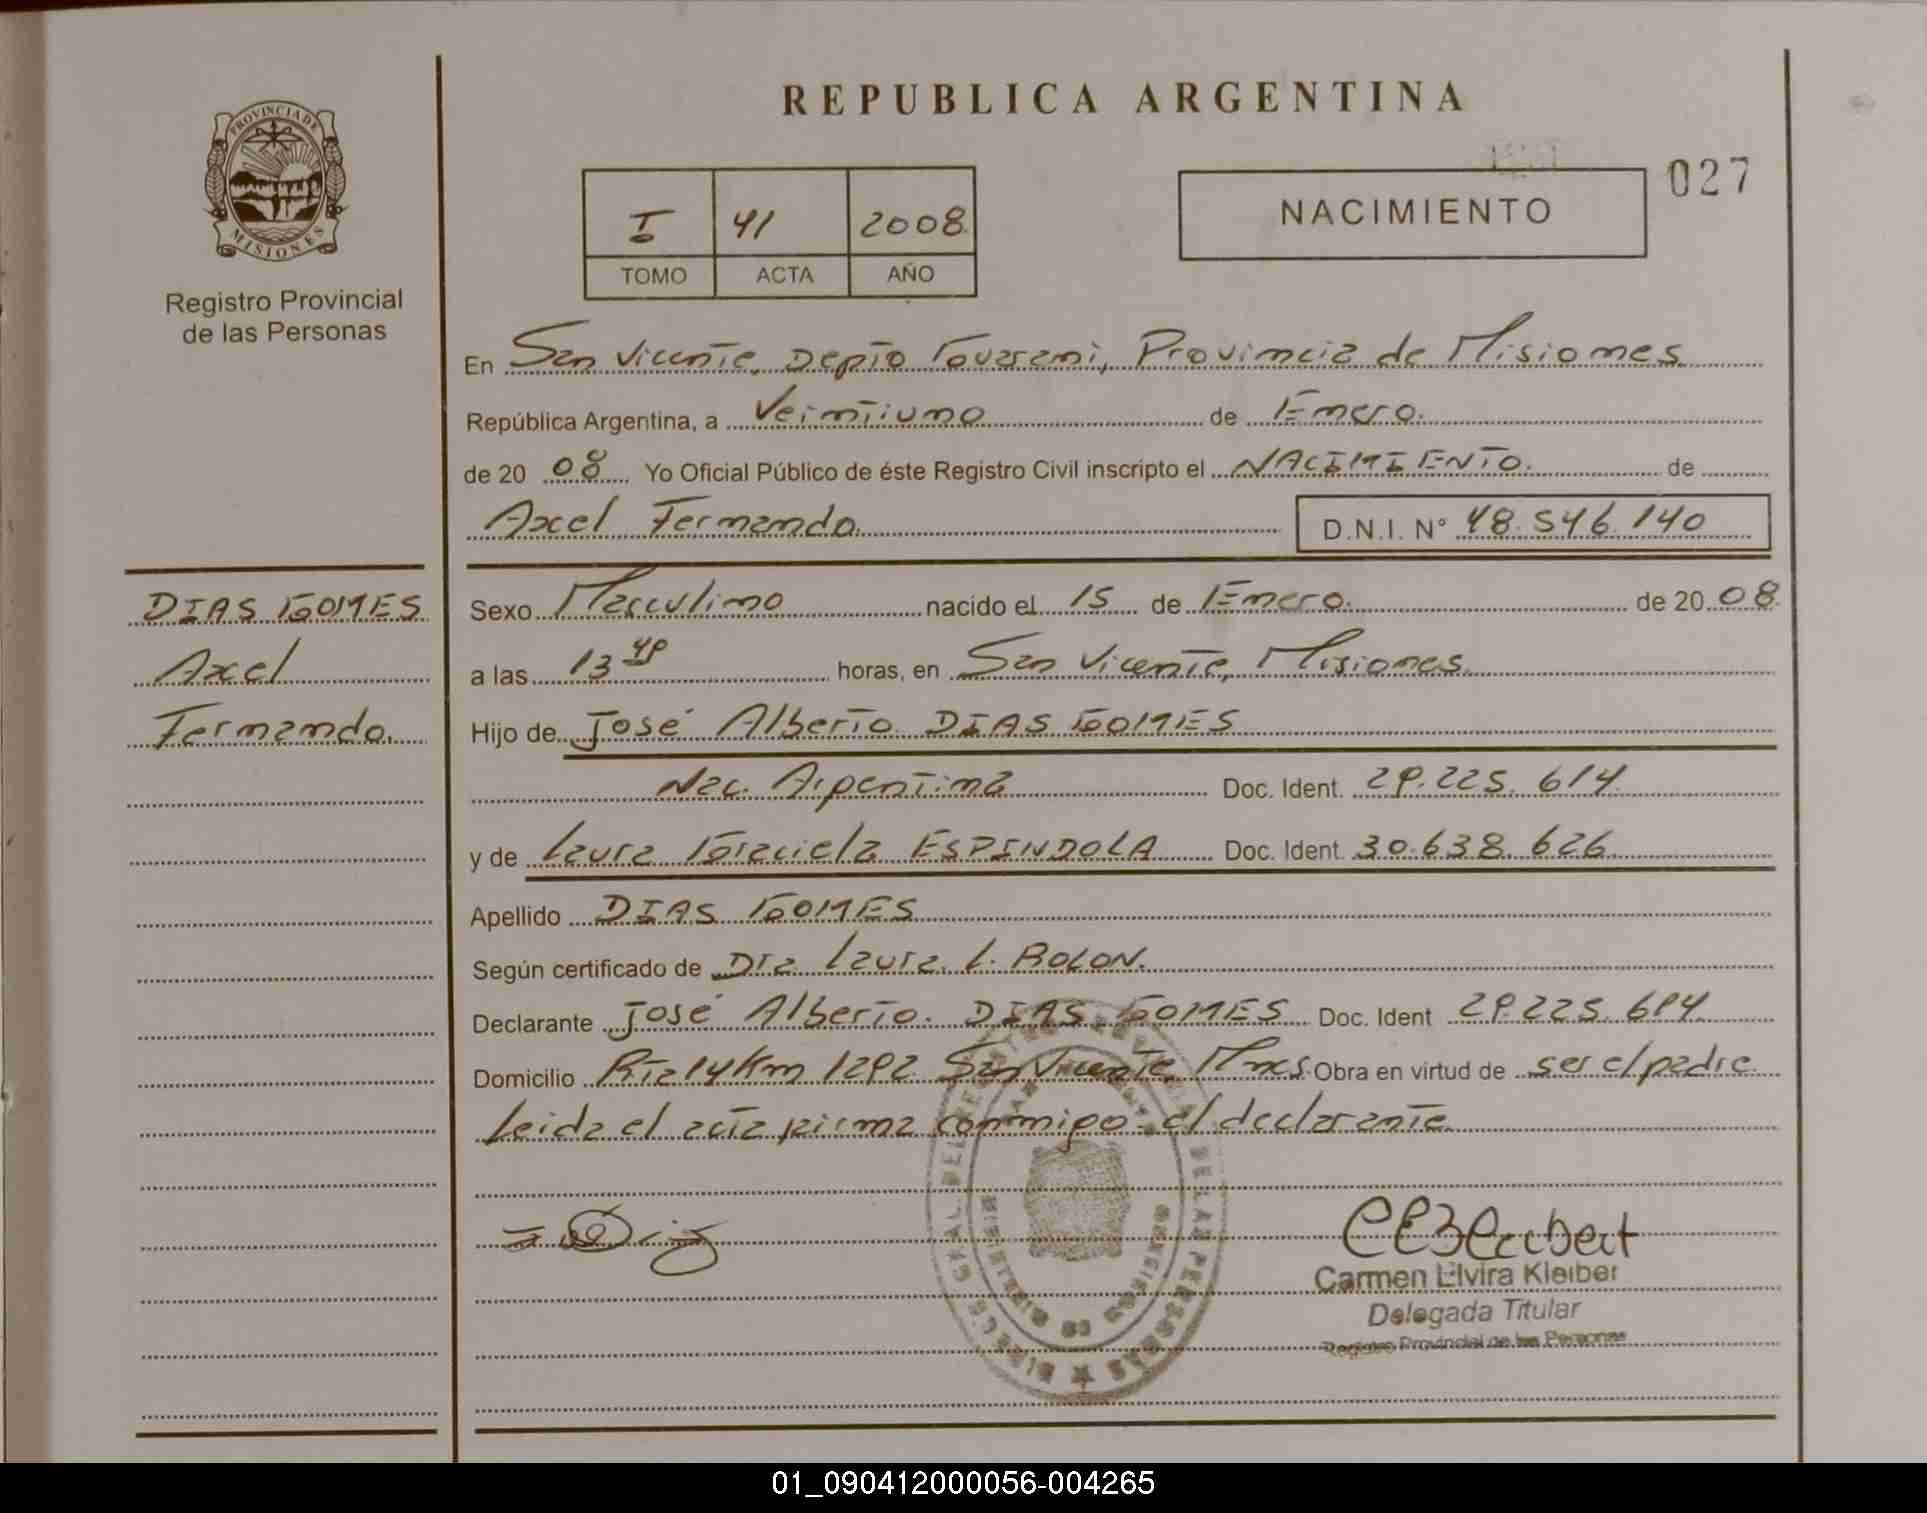 REPUBLICA ARGENTINA
PROVINCIA DE
MISIONES
Registro Provincial
de las Personas
I 41 2008
TOMO ACTA AÑO
NACIMIENTO
027
En San Vicente, Depto Guaraní, Provincia de Misiones
República Argentina, a Veintiuno de Enero.
de 20 08 Yo Oficial Público de éste Registro Civil inscripto el NACIMIENTO. de
Axel Fernando. D.N.I. N° 48.546.140
DIAS GOMES
Axel
Fernando.
Sexo Masculino nacido el 15 de Enero. de 20 08
a las 13 horas, en San Vicente, Misiones.
Hijo de José Alberto DIAS GOMES
Nac. Argentina Doc. Ident. 29.225.614
y de Laura Graciela ESPINDOLA Doc. Ident. 30.638.626
Apellido DIAS GOMES
Según certificado de Dra Laura L. ROLON.
Declarante José Alberto. DIAS GOMES Doc. Ident 29.225.614
Domicilio Rta 14 Km 1292 San Vicente, Mnes Obra en virtud de ser el padre
Leida el acta firma conmigo el declarante
Carmen Elvira Kleiber
Delegada Titular
Registro Provincial de las Personas
01_090412000056-004265